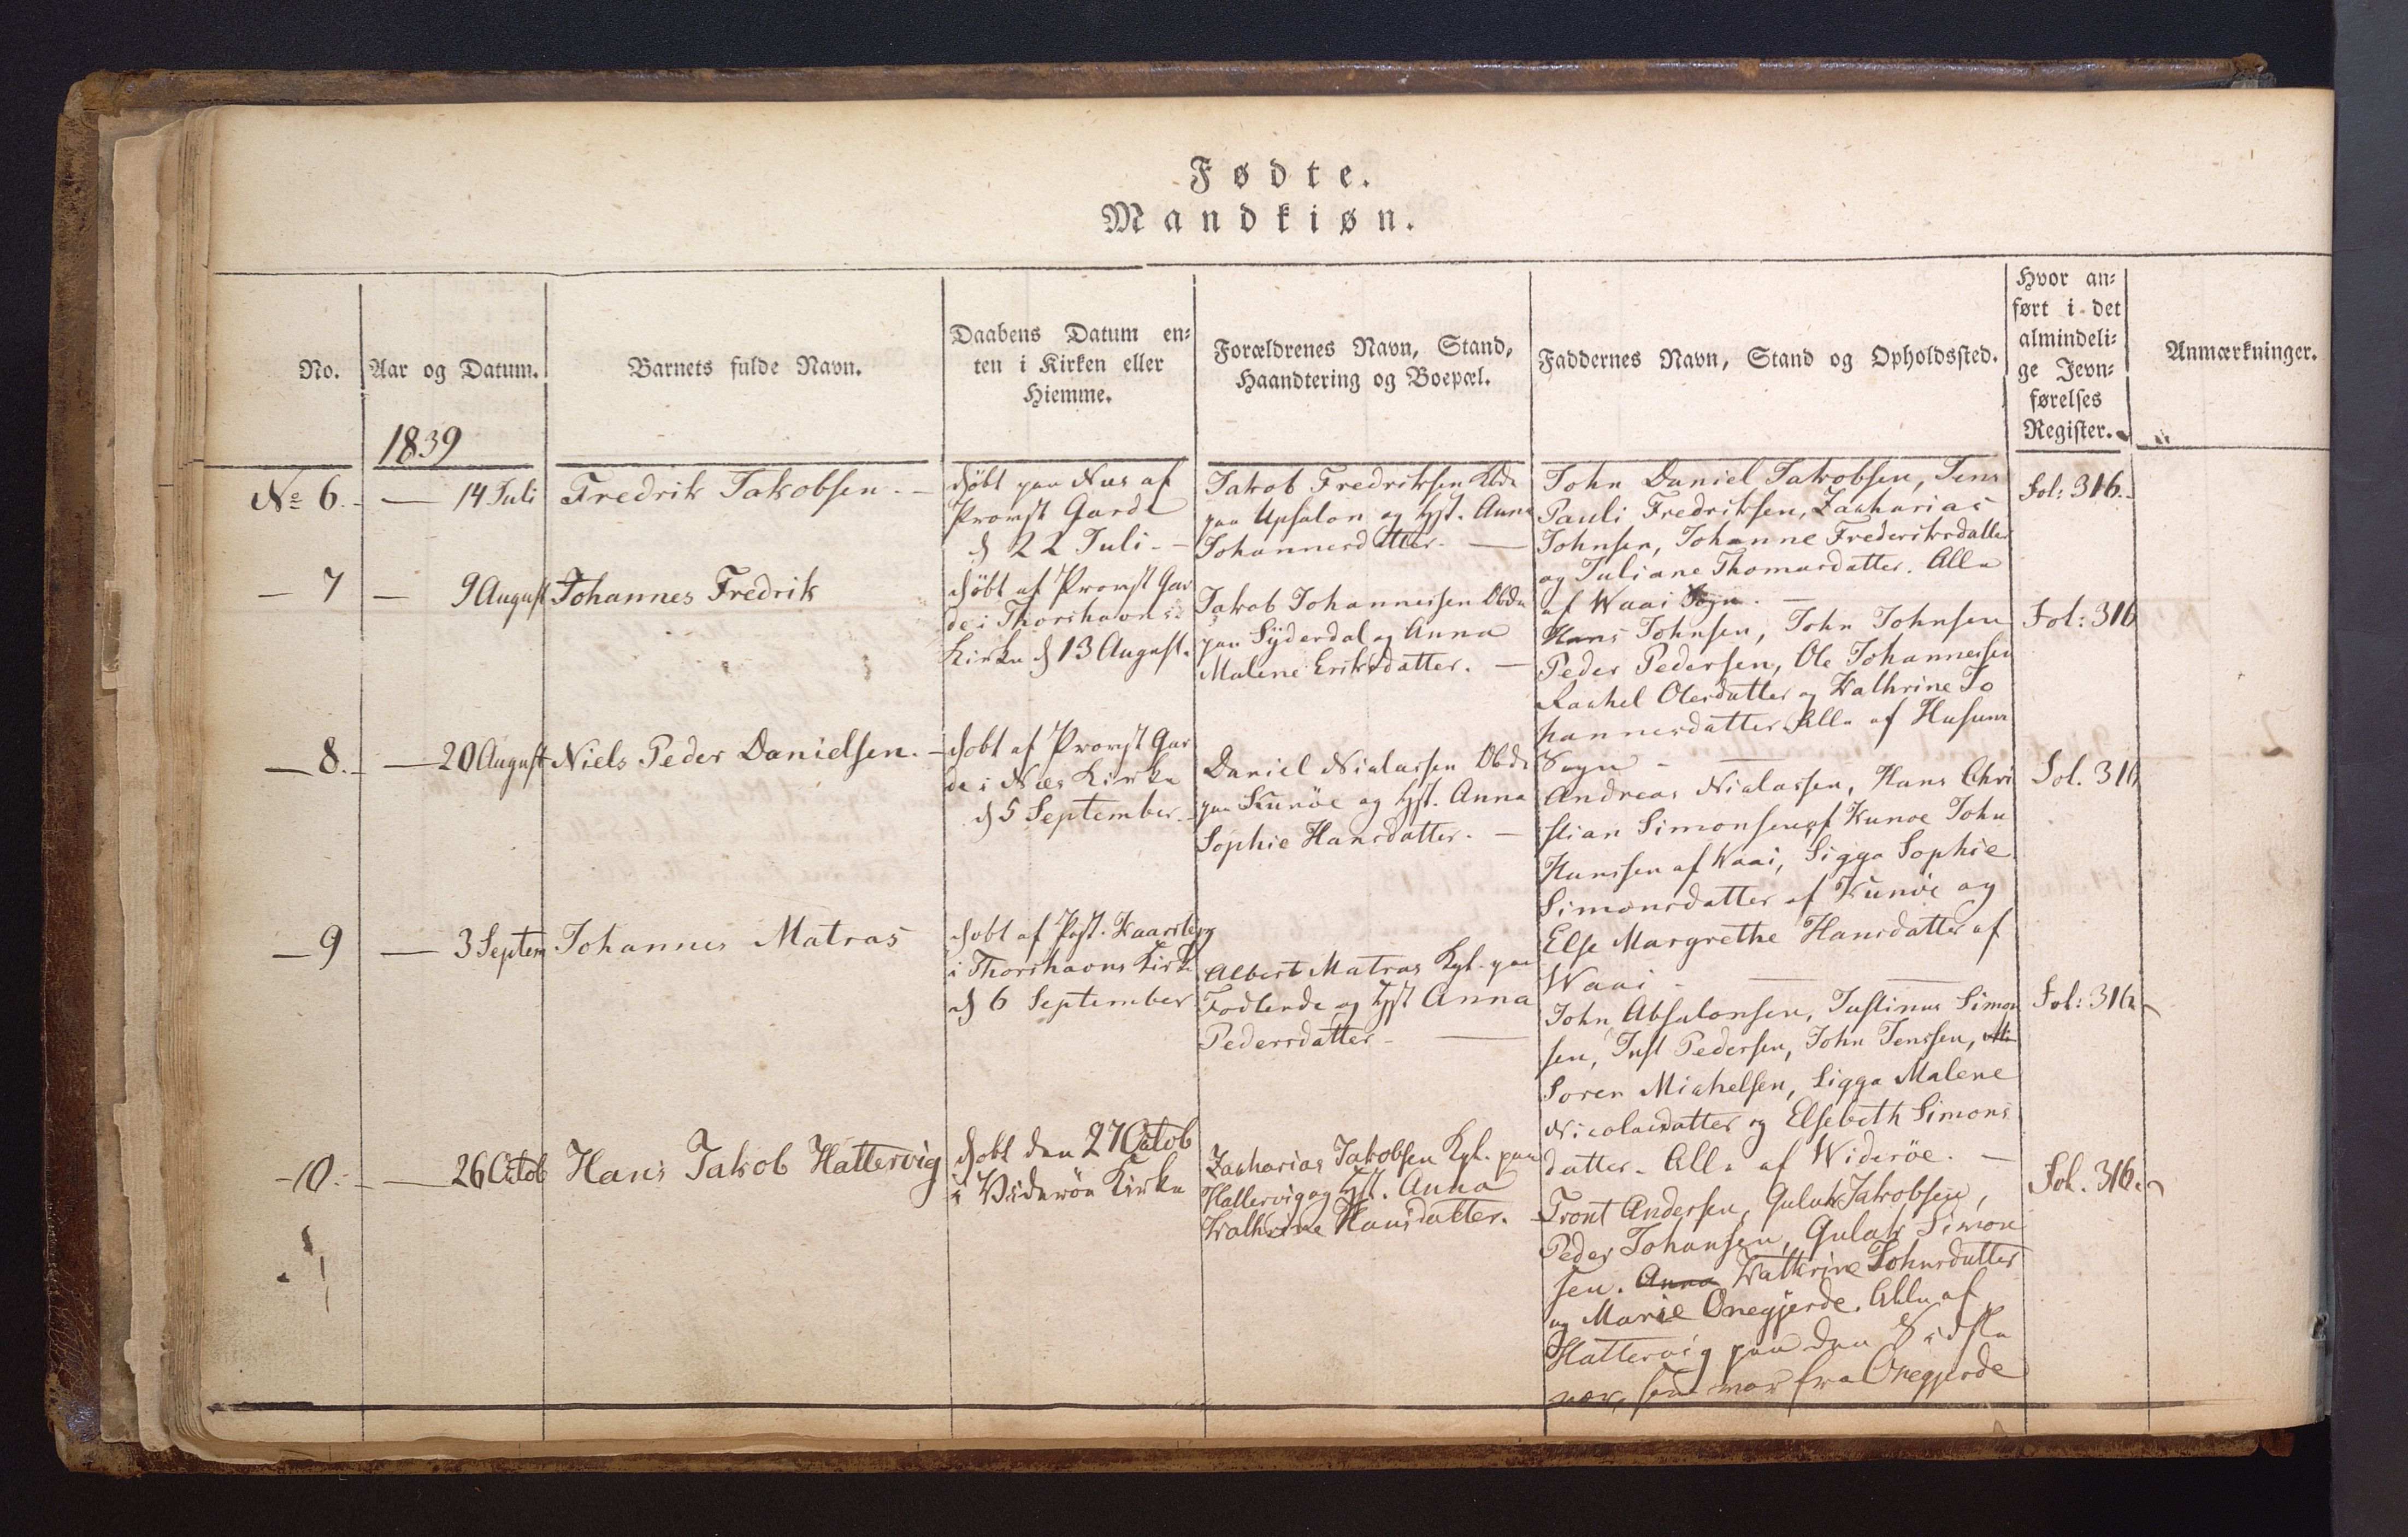 Fødte.
Mandkiøn.
No.
Aar og Datum.
Barnets fulde Navn.
Daabens Datum en-
ten i Kirken eller
Hiemme.
Forældrenes Navn, Stand,
Haandtering og Boepæl.
Faddernes Navn, Stand og Opholdssted.
Hvor an-
ført i det
almindeli-
ge Jevn-
førelses
Register.
Anmærkninger.
1839
No 6. — 14 Juli
Fredrik Jakobsen. —
døbt paa Næs af
Provst Garde
d 22 Juli. —
Jakob Fredriksen
paa Upsalon og Hst. Anna
Johannesdatter. —
John Daniel Jakobsen, Jens
Pauli Fredriksen, Zacharias
Johnsen, Johanne Frederiksdatter
og Juliane Thomasdatter. Alle
af Waai Sogn. —
Fol: 316.
— 7 — 9 August
Johannes Fredrik
døbt af Provst Gar
de i Thorshavns
Kirke d 13 August.
Jakob Johannessen
paa Syderdal og Anna
Malene Eriksdatter. —
Hans Johnsen, John Johnsen
Peder Pedersen, Ole Johannessen
Rachel Olesdatter og Kathrine Jo
hannesdatter. Alle af Husums
Sogn —
Fol: 316
— 8. — 20 August
Niels Peder Danielsen. —
døbt af Provst Gar
de i Næs Kirke
d 5 September. —
Daniel Nielassen
paa Kunöe og Hst. Anna
Sophie Hansdatter. —
Andreas Nielassen, Hans Chri
stian Simonsen af Kunoe John
Hanssen af Waai, Sigga Sophie
Simonsdatter af Kunöe og
Else Margrethe Hansdatter af
Waai —
Fol. 316
— 9 — 3 Septem
Johannes Matras
døbt af Past.
i Thorshavns Kirke
d 6 September
Albert Matras Kgl. paa
og Hst Anna
Pedersdatter —
John Absalonsen, Justinus Simon
sen, Just Pedersen, John Jenssen,
Soren Michelsen, Sigga Malene
Nicolaisdatter og Elsebeth Simons
datter. Alle af Wideröe. —
Fol: 316
— 10. — 26 Octob
Hans Jakob Hattervig
døbt den 27 Octob
i Videröe Kirke
Zacharias Jakobsen Kgl. paa
Hattervig og Hst. Anna
Kathrine Hansdatter.
Tront Andersen, Gulak Jakobsen,
Peder Johansen, Gulak Simon
sen. Anna Kathrine Johnsdatter
og Marie Onegjerde. Alle af
Hattervig paa den Sidste
nær, som var fra Onegjerde
Fol. 316.